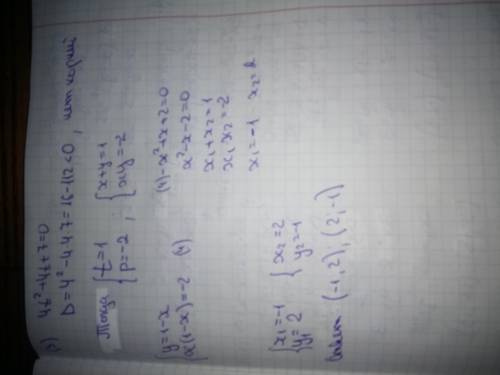 4t²+4t+7=0
D=4²-4·4·7=16-112<0, нет корней
Тогда { t=1 p=-2 ; { x+y=1 xy=-2
{ y=1-x x(1-x)=-2 (4)
(4) -x²+x+2=0
x²-x-2=0
x₁+x₂=1
x₁x₂=-2
x₁=-1 x₂=2
{ x₁=-1 y₁=2 { x₂=2 y₂=-1
Ответ (-1,2); (2,-1)